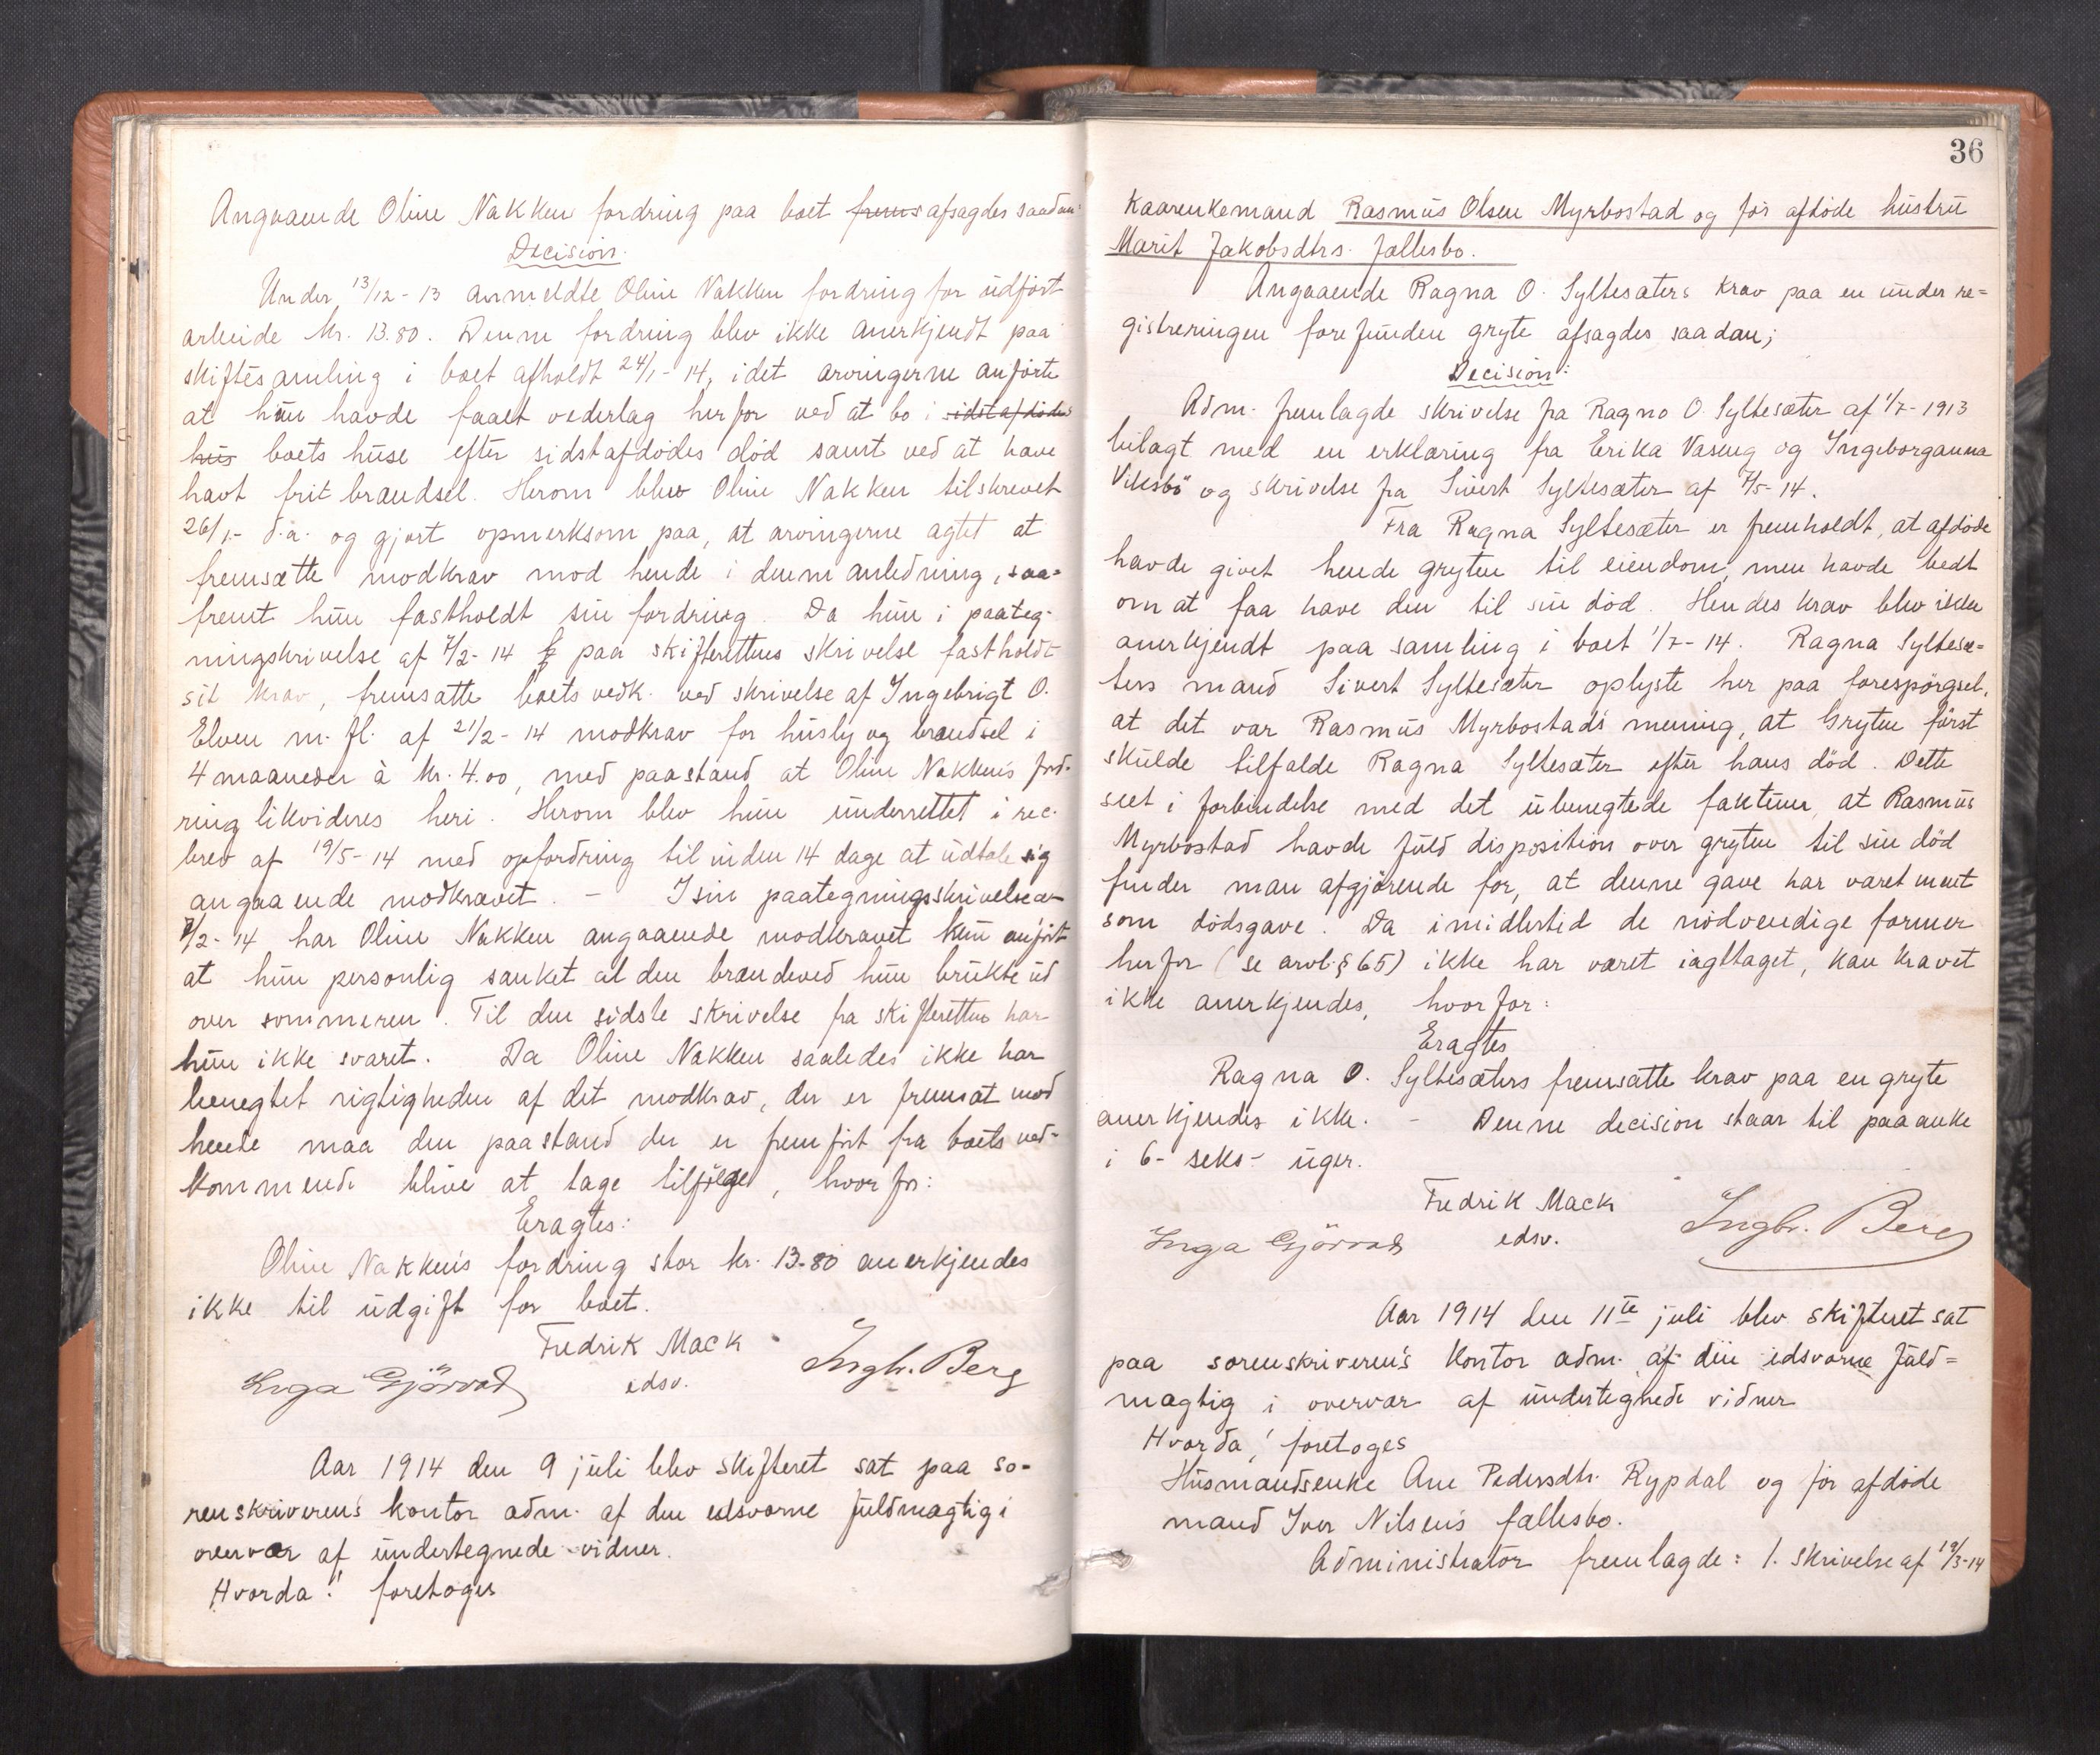 Angaaende Oline Nakkens fordring paa boet frems afsagdes saadan:
Decision.
Under 13/12-13 anmeldte Oline Nakken fordring for udført
arbeide kr. 13.80. Denne fordring blev ikke anerkjendt paa
skiftesamling i boet afholdt 24/1-14, idet arvingerne anførte
at hun havde faaet vederlag herfor ved at bo i sidstafdødes
hus boets huse efter sidstafdødes død samt ved at have
havt frit brændsel. Herom blev Oline Nakken tilskrevet
26/1- d.a. og gjort opmerksom paa, at arvingerne agtet at
fremsætte modkrav mod hende i denne anledning, saa-
fremt hun fastholdt sin fordring. Da hun i paateg-
ningskrivelse af 7/2-14 paa skifterettens skrivelse fastholdt
sit krav, fremsatte boets vedk. ved skrivelse af Ingebrigt O.
Elven m. fl. af 21/2-14 modkrav for husly og brændsel i
4 maaneder à kr. 4.00, med paastand at Oline Nakken's ford-
ring likvideres heri. Herom blev hun underrettet i rec.
brev af 19/5-14 med opfordring til inden 14 dage at udtale sig
angaaende modkravet. - I sin paategningsskrivelse av
7/2-14 har Oline Nakken angaaende modkravet kun anført
at hun personlig sanket al den brændeved hun brukte ud
over sommeren. Til den sidste skrivelse fra skifteretten har
hun ikke svaret. Da Oline Nakken saaledes ikke har
benegtet rigtigheden af det modkrav, der er fremsat mod
hende maa den paastand der er fremført fra boets ved-
kommende blive at tage tilfølge, hvorfor:
Eragtes:
Oline Nakken's fordring stor kr. 13.80 anerkjendes
ikke til udgift for boet.
Fredrik Mack
edsv.
Inga Gjörvad
Ingbr. Berg
Aar 1914 den 9 juli blev skifteret sat paa so-
renskriveren's kontor adm. af den edsvorne fuldmægtig i
overvær af undertegnede vidner.
Hvorda! foretoges
36
Kaarenkemand Rasmus Olsen Myrbostad og før afdøde hustru
Marit Jakobsdtrs. fællesbo.
Angaaende Ragna O. Syltesæters krav paa en under re-
gistreringen forefunden gryte afsagdes saadan;
Decision:
Adm. fremlagde skrivelse fra Ragna O. Syltesæter af 1/7-1913
bilagt med en erklæring fra Erika Vaseng og Ingeborganna
Viksbø og skrivelse fra Sivert Syltesæter af 7/5-14.
Fra Ragna Syltesæter er fremholdt, at afdøde
havde givet hende gryten til eiendom, men havde bedt
om at faa have den til sin død. Hendes krav blev ikke
anerkjendt paa samling i boet 1/7-14. Ragna Syltesæ-
ters mand Sivert Syltesæter oplyste her paa forespørgsel,
at det var Rasmus Myrbostad's mening, at Gryten først
skulde tilfalde Ragna Syltesæter efter hans død. Dette
seet i forbindelse med det ubenegtede faktum, at Rasmus
Myrbostad havde fuld disposition over gryten til sin død
finder man afgjørende for, at denne gave har været ment
som dødsgave. Da imidlertid de nødvendige former
herfor (se arvl. § 65) ikke har været iagttaget, kan kravet
ikke anerkjendes, hvorfor:
Eragtes
Ragna O. Syltesæters fremsatte krav paa en gryte
anerkjendes ikke. - Denne decision staar til paaanke
i 6- seks- uger.
Fredrik Mack
edsv.
Inga Gjörvad
Ingbr. Berg
Aar 1914 den 11te juli blev skifteret sat
paa sorenskriveren's kontor adm. af den edsvorne fuld=
mægtig i overvær af undertegnede vidner
Hvorda! foretoges
Husmandsenke Ane Pedersdtr. Rypdal og før afdøde
mand Iver Nilsen's fællesbo.
Administrator fremlagde: 1. skrivelse af 19/3-14